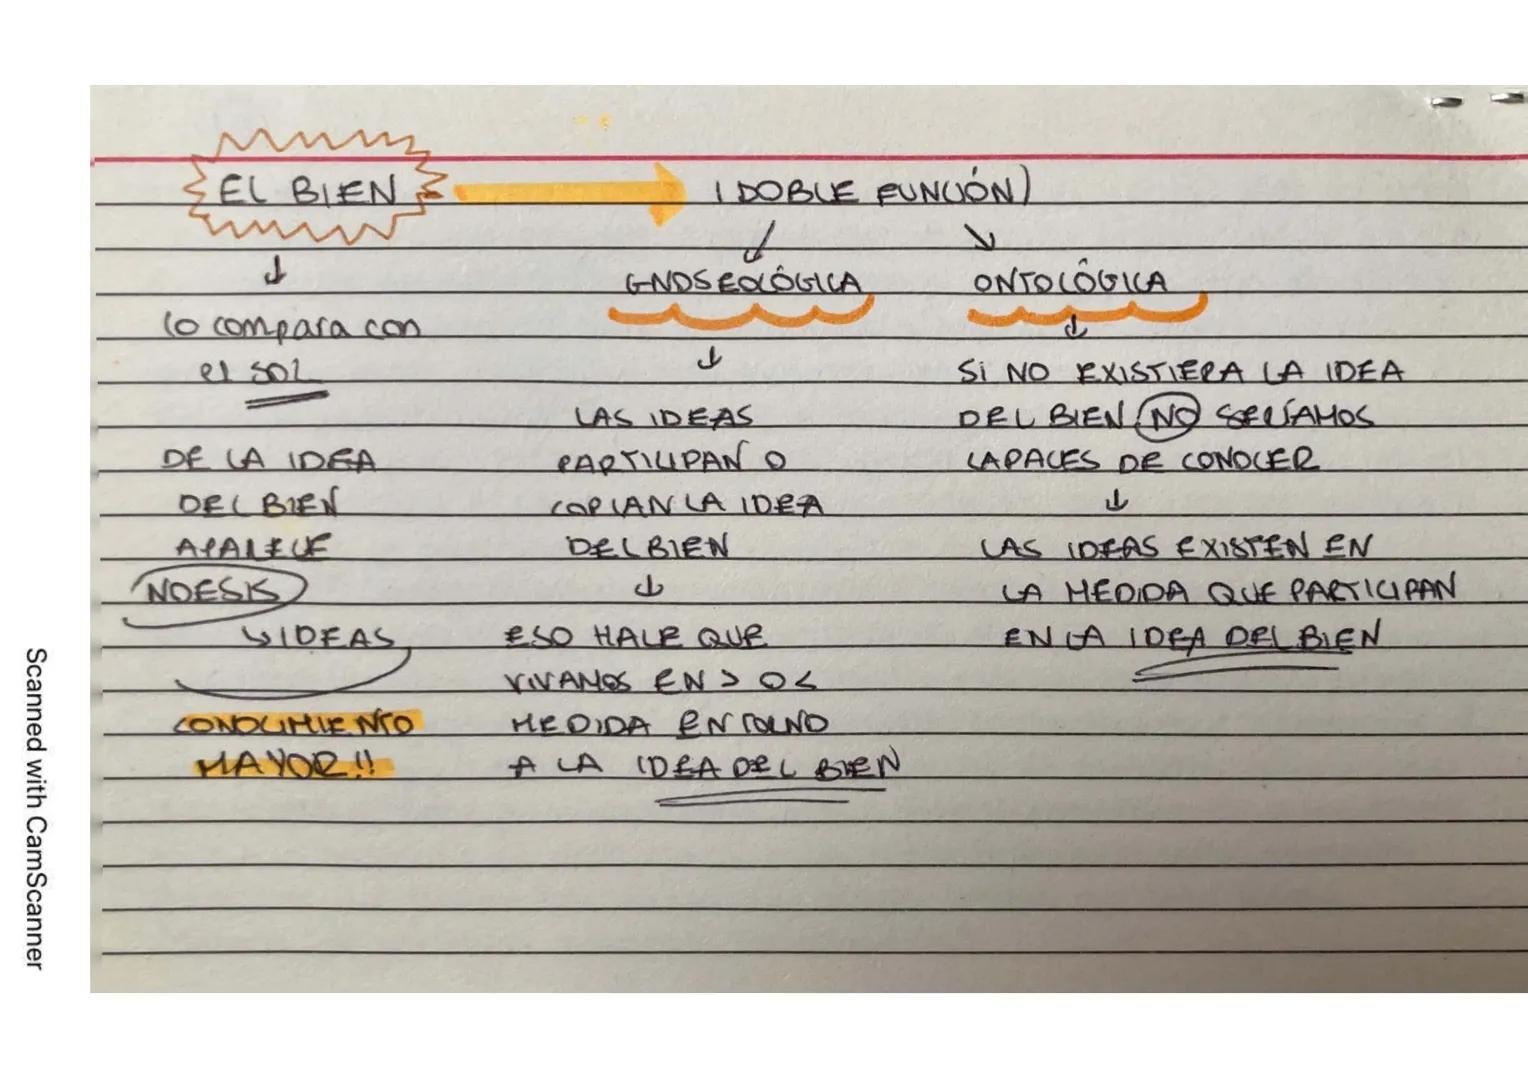 EL BIEN
(DOBLE FUNCIÓN)
lo compara con
el sol
DE LA IDEA
DEL BIEN
APARECE
NOESIS
IDEAS
CONOCIMIENTO
MAYOR!!
GNOSEOLÓGICA
LAS IDEAS
PARTICIPAN O
COPIAN LA IDEA
DEL BIEN
ESO HACE QUE
VIVAMOS EN > O <
MEDIDA EN TORNO
A LA IDEA DEL BIEN
ONTOLÓGICA
SI NO EXISTIERA LA IDEA
DEL BIEN NO SERÍAMOS
CAPACES DE CONOCER
LAS IDEAS EXISTEN EN
LA MEDIDA QUE PARTICIPAN
EN LA IDEA DEL BIEN
Scanned with CamScanner